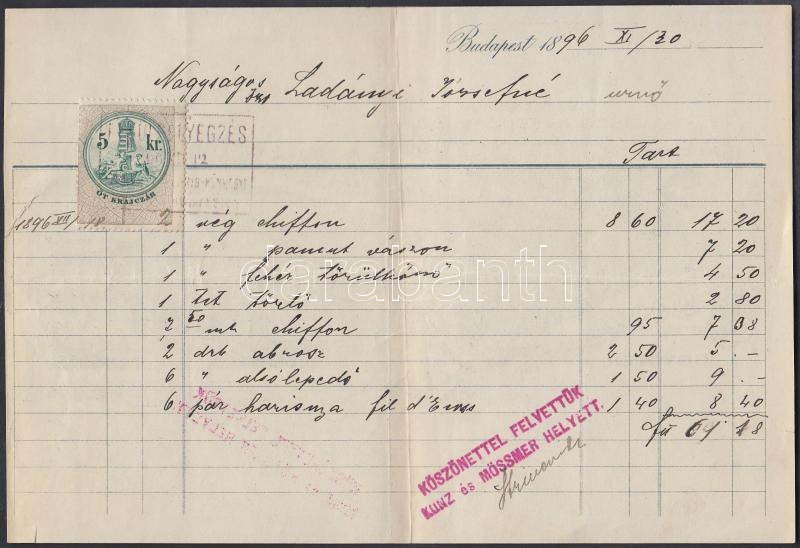 Budapest 1896 XI/30
Nagyságos Ladányi Józsefné urnő
5 kr.
ÖT KRAJCZÁR
Tart
1896 VII/18 2 vég chiffon 8 60 17 20
1 " pamut vászon 7 20
1 " fehér törülköző 4 50
1 tct törlő 2 80
7 50 mt chiffon 95 7
2 drb abrosz 2 50 5 .-
6 " alsó lepedő 1 50 9 .-
6 pár harisnya fil d' 1 40 8 40
KÖSZÖNETTEL FELVETTÜK
KUNZ és MÖSSMER HELYETT.
darabanth